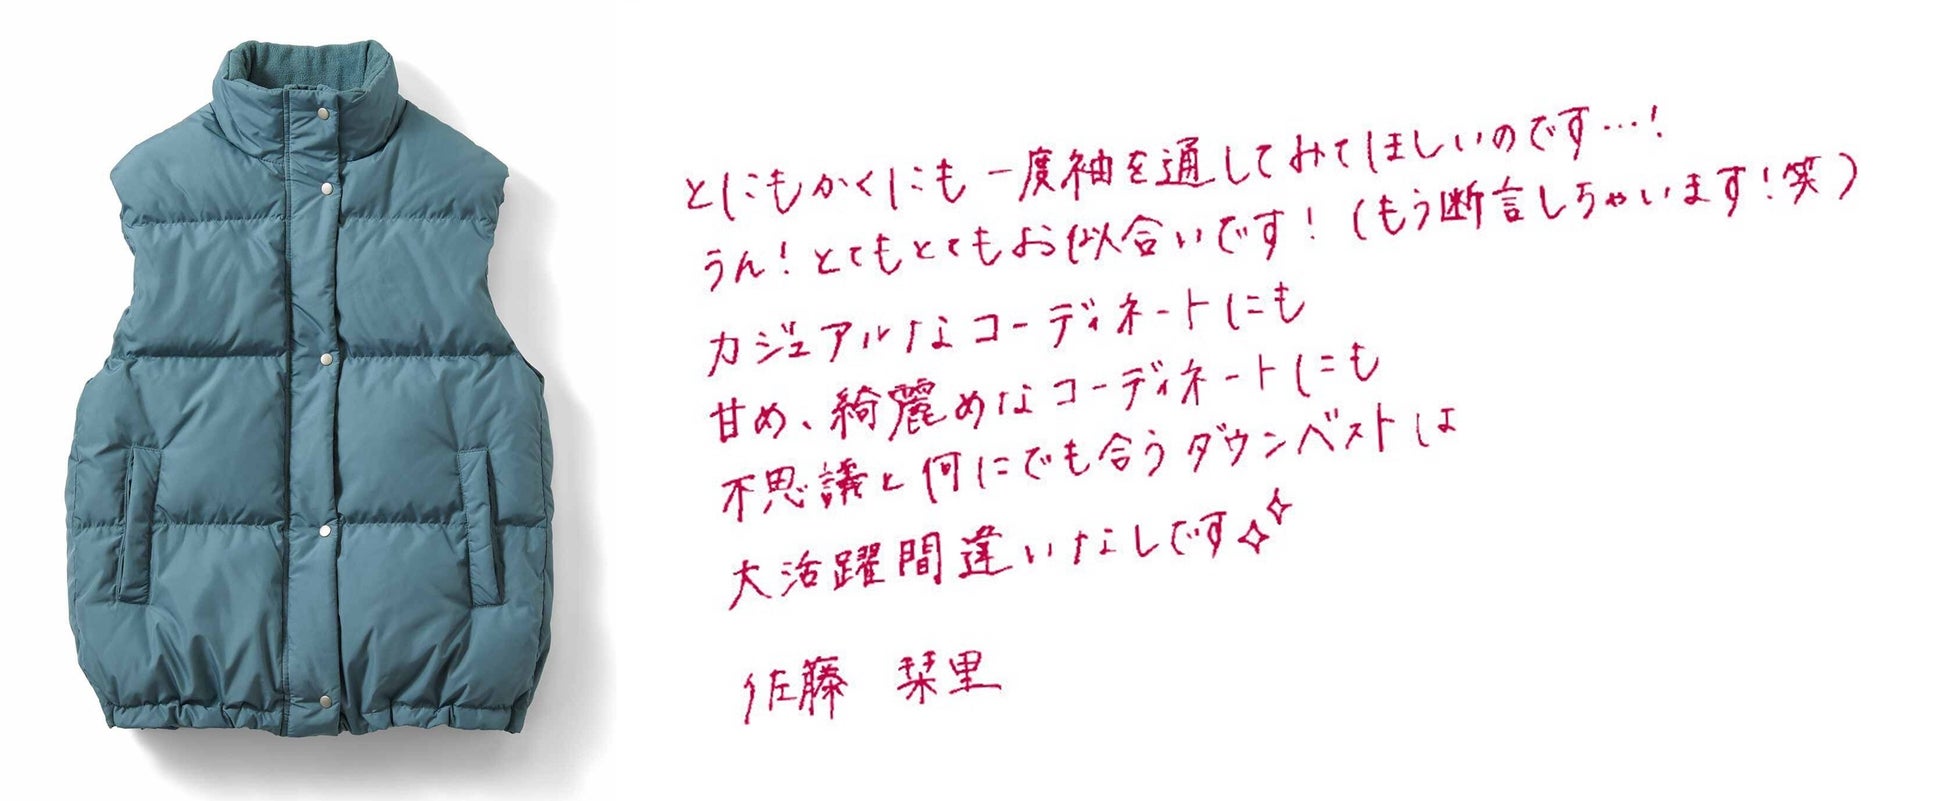 とにもかくにも一度袖を通してみてほしいのです…!
うん!とてもとてもお似合いです!(もう断言しちゃいます!笑)
カジュアルなコーディネートにも
甘め、綺麗めなコーディネートにも
不思議と何にでも合うダウンベストは
大活躍間違いなしです✧✧
佐藤 栞里